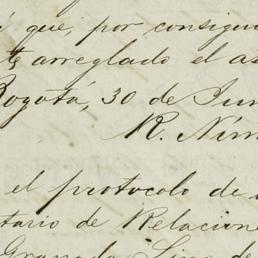 que, por consigui
arreglado el as
Bogotá, 30 de Jun
R. Núñ
el protocolo de
tario de Relacione
Granada, Lino de